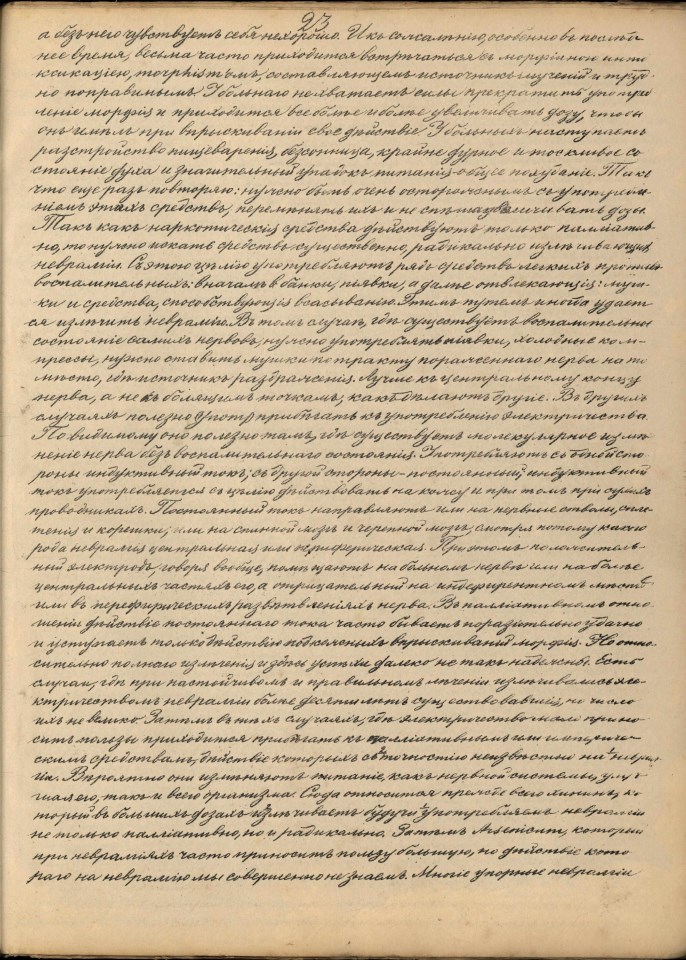 23
а безъ него чувствуетъ себя нехорошо. И къ сожалѣнію, особенно въ послѣд-
нее время, весьма часто приходится встрѣчаться съ морфійною инто-
ксикаціею, morphismъмъ, составляющемъ источникъ мученій и труд-
но поправимымъ. У больнаго не хватаетъ силы прекратить употре-
леніе морфія и приходится все болѣе и болѣе увеличивать дозу, чтобы
онъ имѣлъ при впрыскиваніи свое дѣйствіе. У больныхъ наступаетъ
разстройство пищеваренія, безсонница, крайне дурное и тоскливое со-
стояніе духа и значительный упадокъ питанія общее похуданіе. Такъ
что еще разъ повторяю: нужно быть очень осторожнымъ съ употребле-
ніемъ этихъ средствъ, перемѣнять ихъ и не спѣша увеличивать дозы.
Такъ какъ наркотическія средства дѣйствуютъ только палліатив-
но, то нужно искать средствъ существенно, радикально излѣчивающихъ
невралгіи. Съ этою цѣлію употребляютъ рядъ средствъ легкихъ противо-
воспалительныхъ: вначалѣ банки, піявки, а далѣе отвлекающія: муш-
ки и средства, способствующія всасыванію. Этимъ путемъ иногда удает-
ся излѣчить невралгію. Въ томъ случаѣ, гдѣ существуетъ воспалительное
состояніе самихъ нервовъ, нужно употреблять піявки, холодные ком-
прессы, нужно ставить мушки по тракту пораженнаго нерва на то
мѣсто, гдѣ источникъ раздраженія. Лучше къ центральному концу
нерва, а не къ болящимъ точкамъ, какъ дѣлаютъ другіе. Въ другихъ
случаяхъ полезно прибѣгать къ употребленію электричества.
Повидимому оно полезно тамъ, гдѣ существуетъ молекулярное измѣ-
неніе нерва безъ воспалительнаго состоянія. Употребляютъ съ одной сто-
роны индуктивный токъ; съ другой стороны - постоянный; индуктивный
токъ употребляется съ цѣлію дѣйствовать на кожу и при томъ при сухихъ
проводникахъ. Постоянный токъ направляютъ или на нервные стволы, спле-
тенія и корешки; или на спинной мозгъ и черепной мозгъ, смотря потому какого
рода невралгія центральная или периферическая. При этомъ положитель-
ный электродъ, говоря вообще, помѣщаютъ на больномъ нервѣ или на болѣе
центральныхъ частяхъ его, а отрицательный на индеферентномъ мѣстѣ
или въ переферическихъ развѣтвленіяхъ нерва. Въ палліативномъ отно-
шеніи дѣйствіе постояннаго тока часто бываетъ поразительно удачно
и уступаетъ только дѣйствію подкожныхъ впрыскиваній морфія. Но отно-
сительно полнаго излѣченія и здѣсь успѣхи далеко не такъ надежны. Есть
случаи, гдѣ при настойчивомъ и правильномъ лѣченіи излѣчивались эле-
ктричествомъ невралгіи болѣе десяти лѣтъ существовавшія, но число
ихъ не велико. Затѣмъ въ тѣхъ случаяхъ, гдѣ электричество не прино-
ситъ пользы приходится прибѣгать къ палліативнымъ или эмпириче-
скимъ средствамъ, дѣйствіе которыхъ съ точностію неизвѣстно на невралгіи.
Вѣроятно они измѣняютъ питаніе, какъ нервной системы, улуч-
шая его, такъ и всего организма. Сюда относится прежде всего хининъ, ко-
торый въ большихъ дозахъ излѣчиваетъ будучи употребляемъ невралгіи
не только палліативно, но и радикально. Затѣмъ Arsenicum, который
при невралгіяхъ часто приноситъ пользу большую, но дѣйствіе кото-
раго на невралгію мы совершенно не знаемъ. Многіе упорные невралгіи